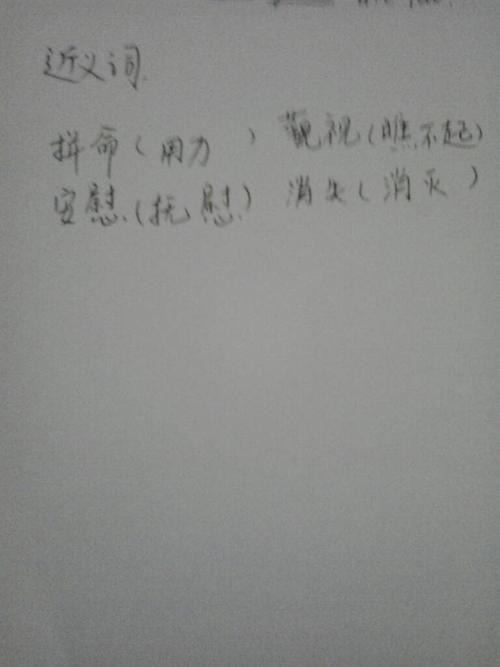 近义词
拼命(用力) 藐视(瞧不起)
安慰(抚慰) 消失(消灭)